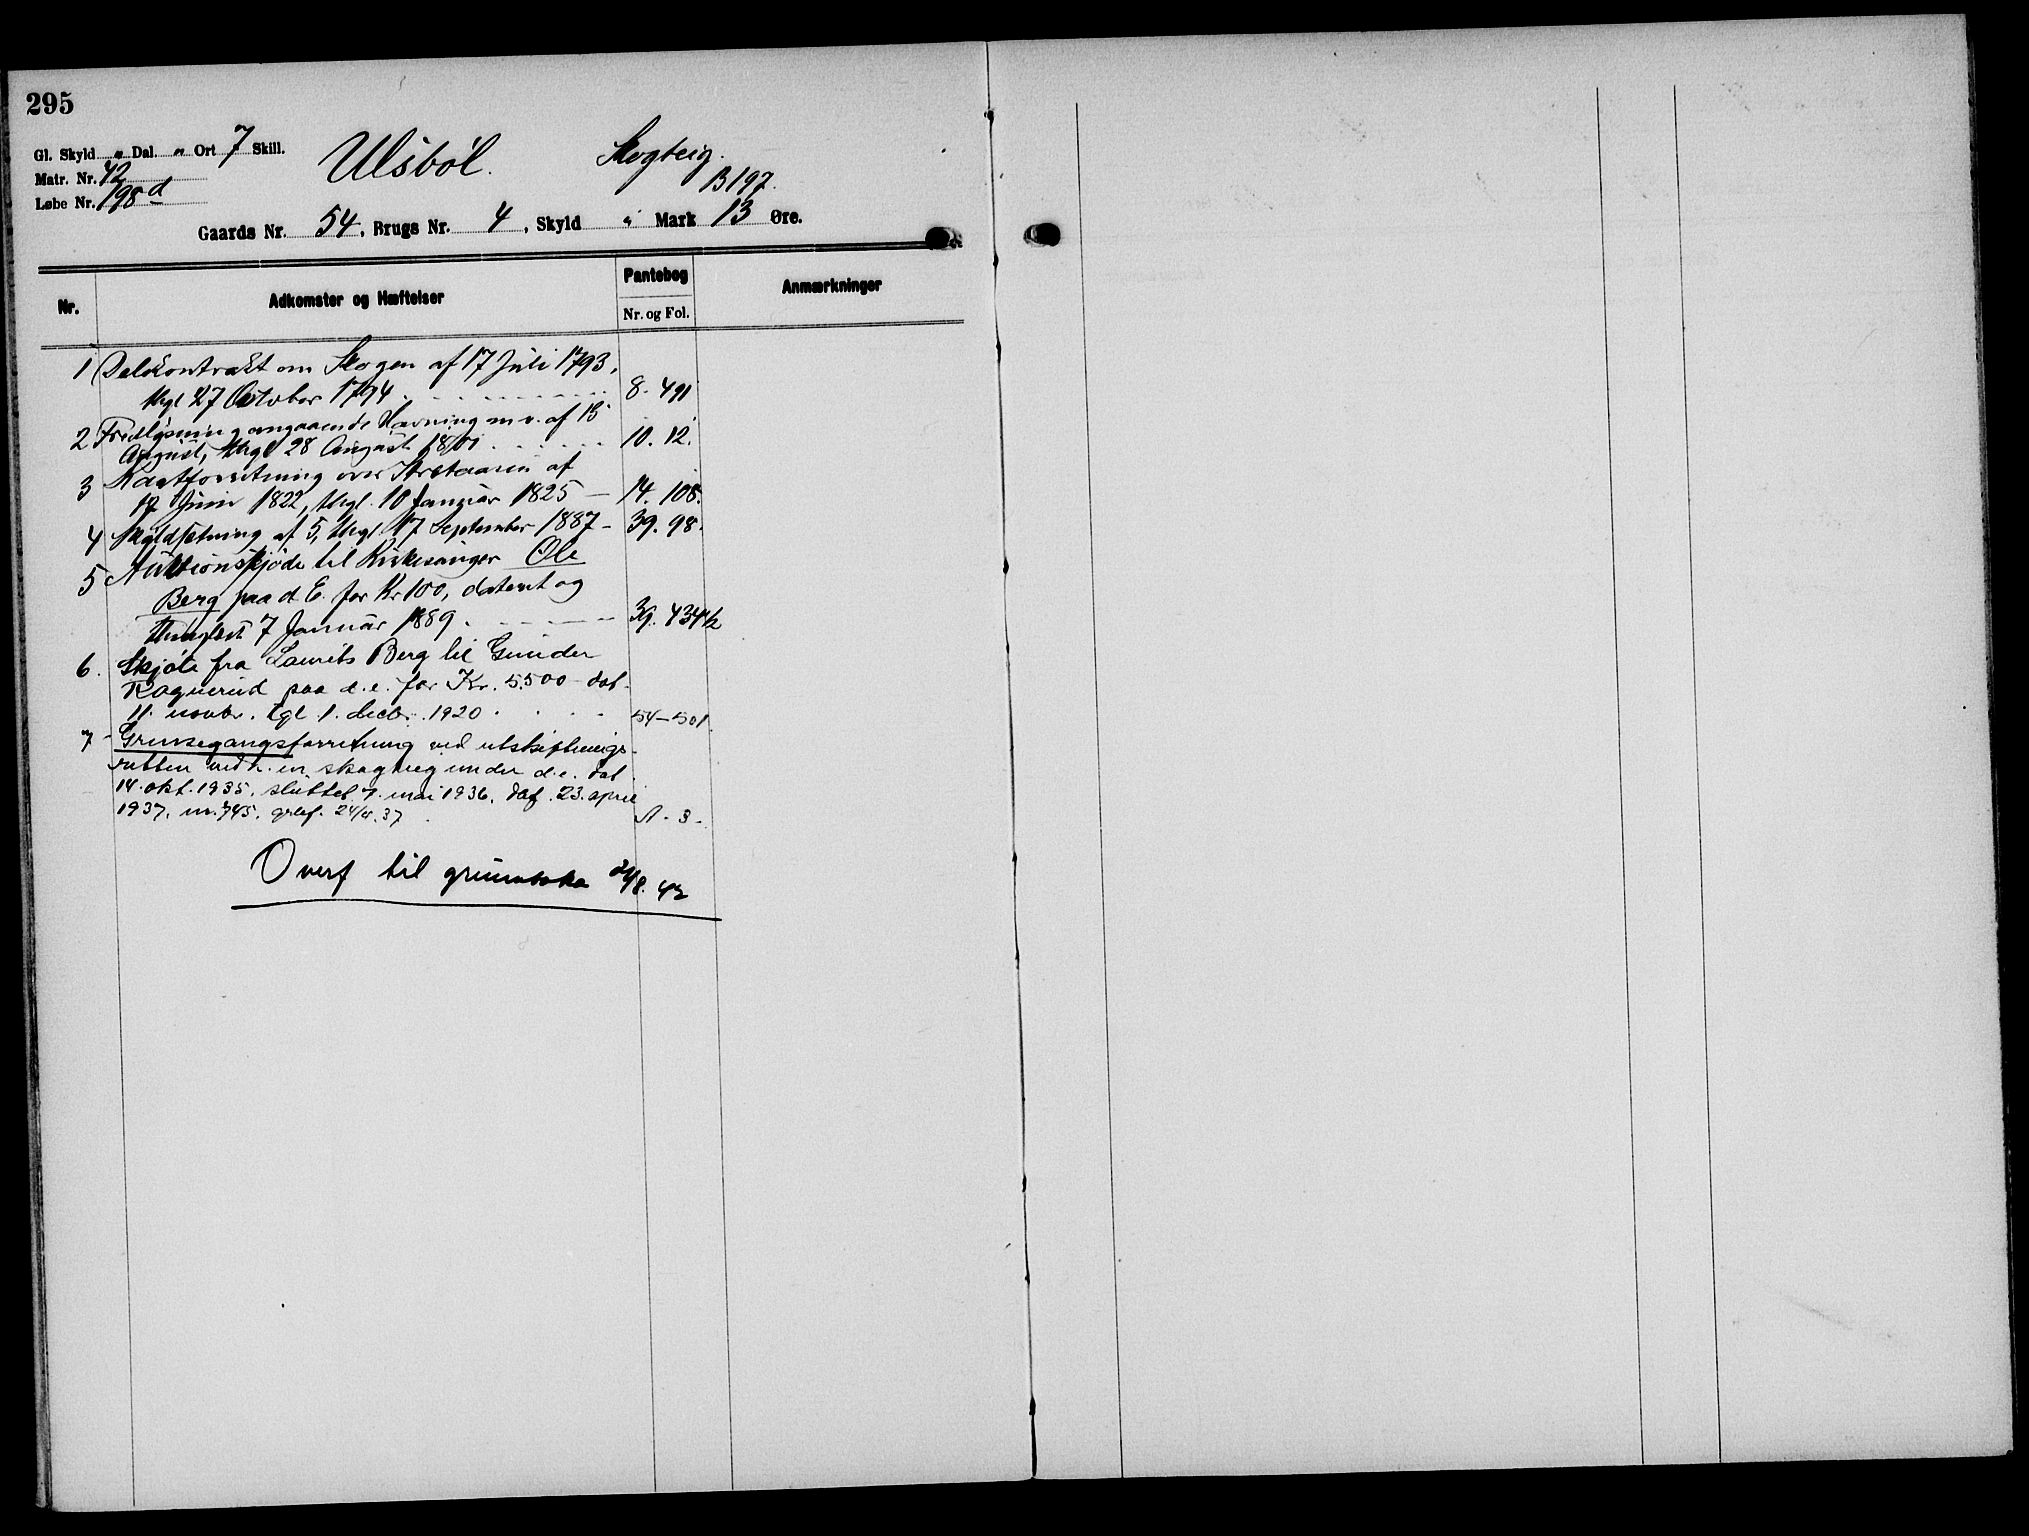 295
Gl. Skyld „ Dal. „ Ort 7 Skill.
Matr. Nr. 42
Løbe Nr. 198 d
Ulsbøl.
Skogteig.
B 197.
Gaards Nr. 54, Brugs Nr. 4, Skyld „ Mark 13 Øre.
Nr.
Adkomster og Hæftelser
Pantebog
Nr. og Fol.
Anmærkninger
1 Delekontrakt om Skogen af 17 Juli 1793,
thgl 27 October 1794 8. 491
2 Fredlysning angaaende Havning m.v. af 13
August, thgl 28 August 1801 10. 12.
3 Kastforretning over af
17 Juni 1822, thgl. 10 Januar 1825 — 14. 108.
4 Skyldsætning af 5, thgl 17 September 1887 - 39. 98.
5 Auktionsskjøde til Kirkesanger Ole
Berg paa d. E. for Kr 100, dateret og
thinglæst 7 Januar 1889. 39. 434½
6. Skjøte fra Laurits Berg til Gunder
Ragnerud paa d.e. for Kr. 5.500 - dat.
11. novbr. tgl. 1. decbr. 1920 54-501.
7 - Grensegangsforretning ved utskiftnings-
retten vedk. en skogteig under d.e. dat.
14. okt. 1935, sluttet 7. mai 1936, dagf. 23. april
1937, nr. 745, grbf. 24/4. 37. A - 3 -
Overf til grunnboka 24/8. 42